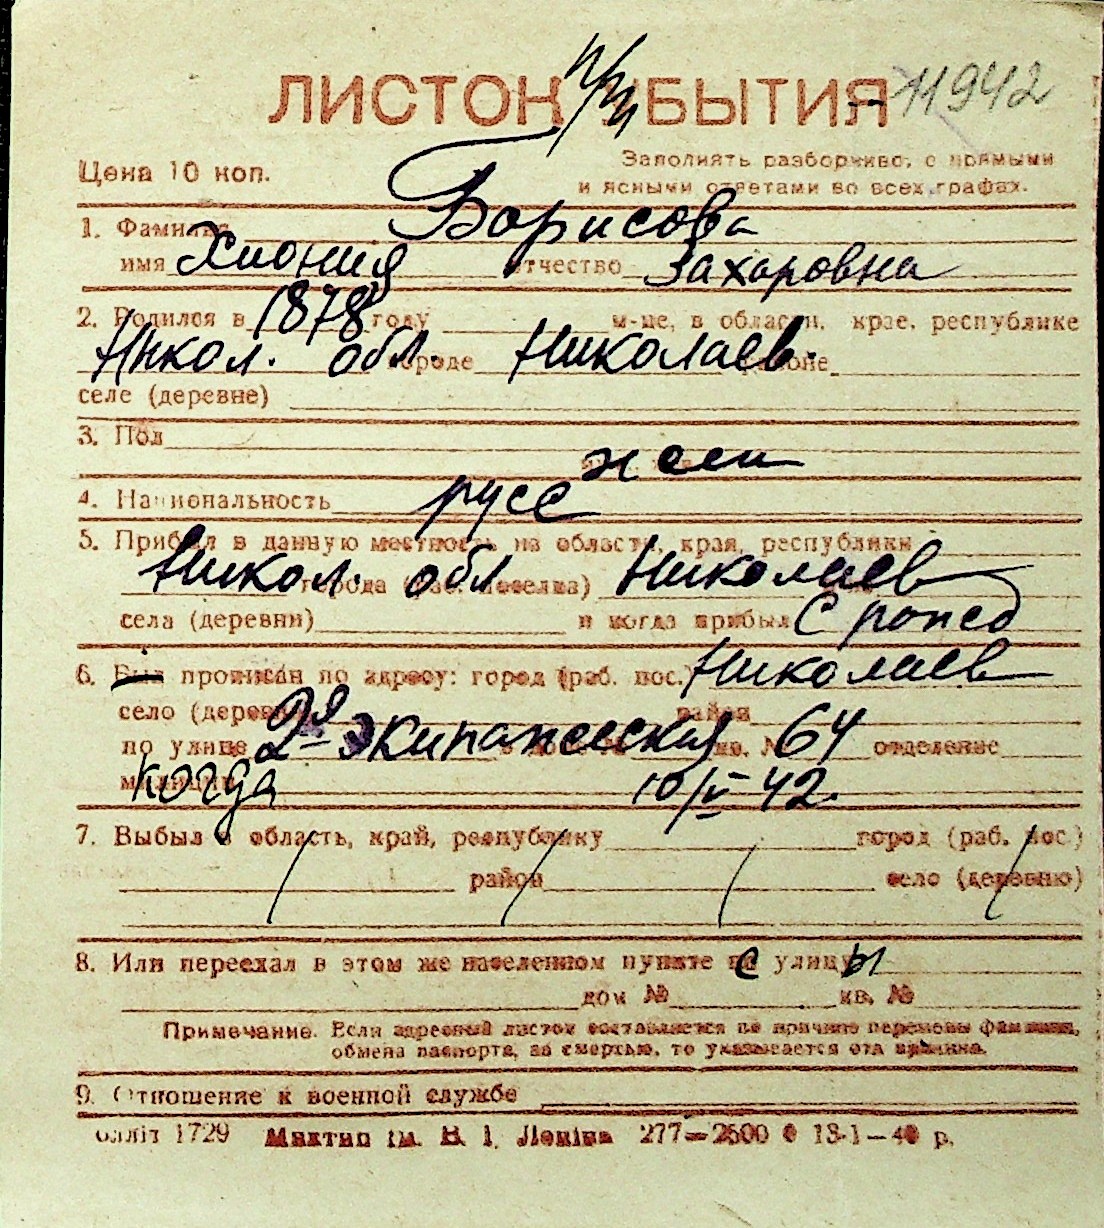 ЛИСТОК ПРИБЫТИЯ 11942
Цена 10 коп. Заполнять разборчиво, с прямыми
и ясными ответами во всех графах.
1. Фамилия Борисова
имя Хиония отчество Захаровна
2. Родился в 1878 году м-це, в области, крае, республике
Никол. обл. городе Николаев. районе
селе (деревне)
3. Пол
жен
4. Национальность русс
5. Прибыл в данную местность из области, края, республики
Никол. обл города (раб. поселка) Николаев
села (деревни) и когда прибыл С рожед
6. Был прописан по адресу: город (раб. пос.) Николаев
село (деревня) район
по улице 2я Экипажеская кв. № 64 отделение
милиции когда 10/V-42.
7. Выбыл в область, край, республику город (раб. пос.)
район село (деревню)
8. Или переехал в этом же населенном пункте с улицы
дом № кв. №
Примечание. Если адресный листок составляется по причине перемены фамилии,
обмена паспорта, за смертью, то указывается эта причина.
9. Отношение к военной службе
Оллiт 1729 Миктип iм. В. I. Ленiна 277—2500 13-1—4 р.